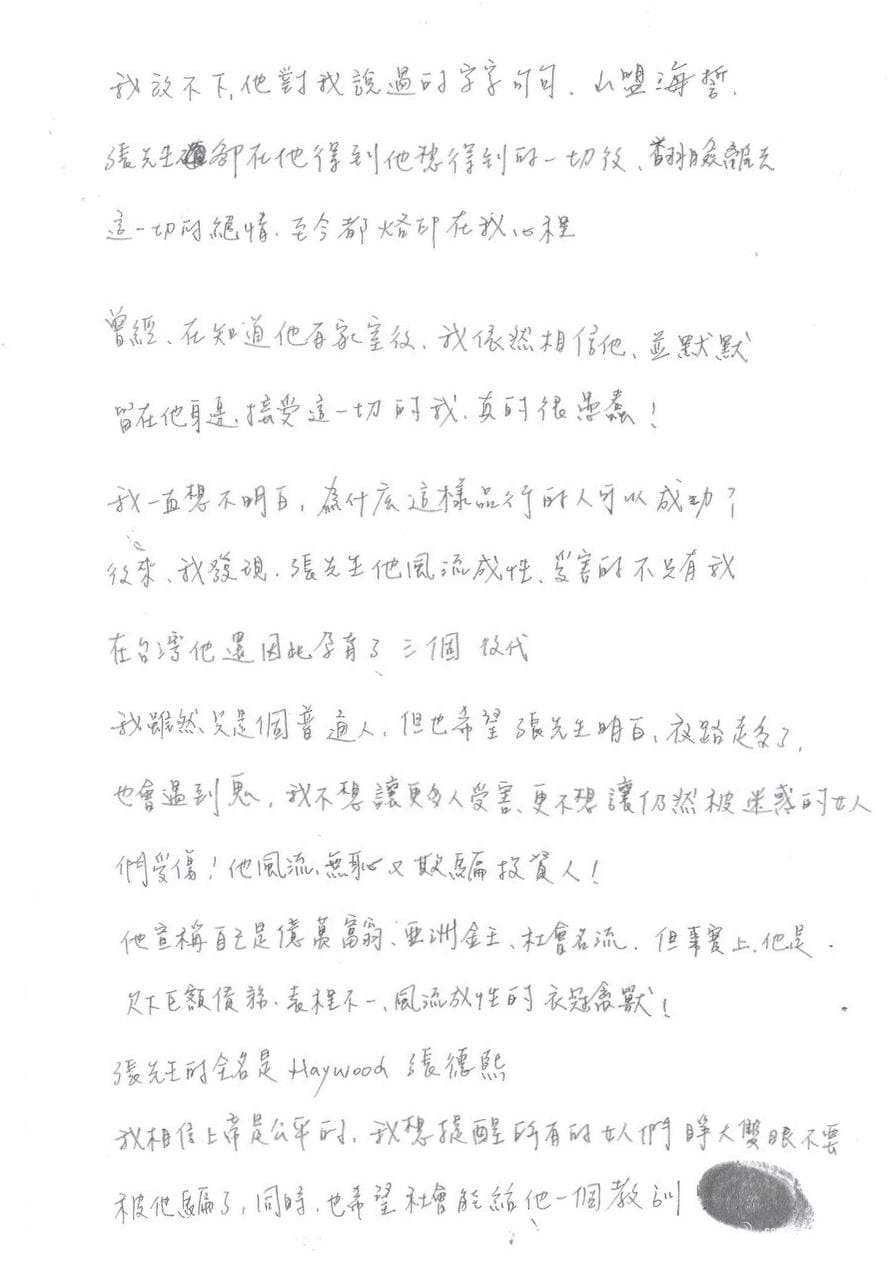 我放不下,他對我說過的字字句句、山盟海誓.
張先生卻在他得到他想得到的一切後、翻臉離去
這一切的絕情.至今都烙印在我心裡
曾經、在知道他有家室後、我依然相信他、並默默
留在他身邊.接受這一切的我.真的很愚蠢!
我一直想不明白,為什么這樣品行的人可以成功?
後來、我發現.張先生他風流成性、受害的不只有我
在台灣他還因此孕育了三個後代
我雖然只是個普通人,但也希望張先生明白,夜路走多了,
也會遇到鬼,我不想讓更多人受害、更不想讓仍然被迷惑的女人
們受傷!他風流、無恥又欺騙投資人!
他宣稱自己是億萬富翁、亞洲金王、社會名流.但事實上.他是.
欠下巨額債務.表裡不一、風流放性的衣冠禽獸!
張先生的全名是Haywood 張德熙
我相信上帝是公平的,我想提醒所有的女人們睜大雙眼不要
被他騙了,同時.也希望社會能給他一個教訓